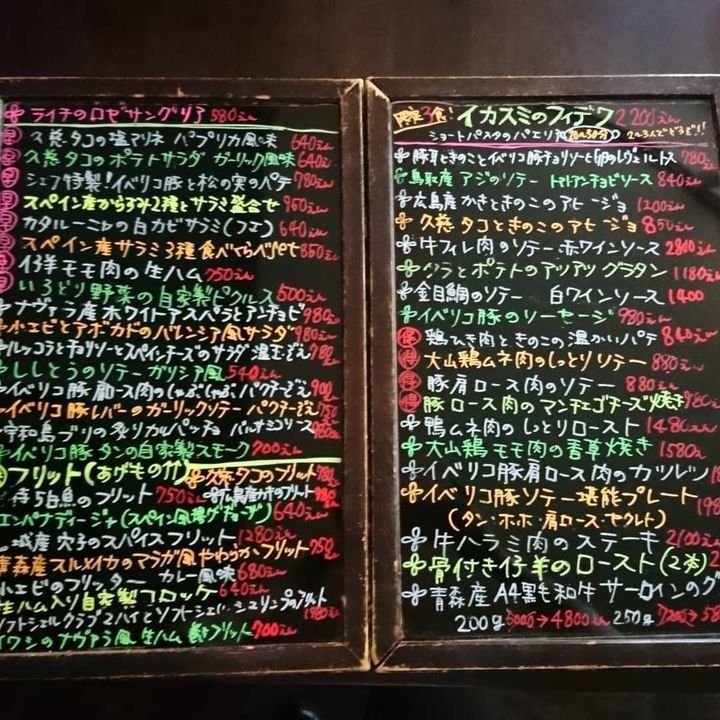 ライチのロゼサングリア 580えん
久慈タコの塩マリネ パプリカ風味 640えん
久慈タコのポテトサラダ ガーリック風味 640えん
シェフ特製！イベリコ豚と松の実のパテ 780えん
スペイン産からすみ2種とサラミ盛合せ 960えん
カタルーニャの白カビサラミ(フエ) 640えん
スペイン産サラミ3種食べくらべset 850えん
仔羊モモ肉の生ハム 750えん
いろどり野菜の自家製ピクルス 500えん
ナヴァラ産ホワイトアスパラとアンチョビ 980えん
小エビとアボカドのバレンシア風サラダ 980えん
ルッコラとチョリソーとスペインチーズのサラダ 温玉ぞえ 980
ししとうのソテー ガリシア風 540えん
イベリコ豚肩ロース肉のしゃぶしゃぶ パクチーぞえ 900
イベリコ豚レバーのガーリックソテー パクチーぞえ 750
宇和島ブリの炙りカルパッチョ バルサミコソース 980
イベリコ豚タンの自家製スモーク 700えん
フリット(あげもの) 久慈タコのフリット 780
白魚のフリット 750えん 広島産かきのフリット
エンパナディージャ(スペイン風揚げギョーザ) 640えん
城産 穴子のスパイスフリット 1280えん
青森産スルメイカのマラガ風やわらかフリット 750えん
小エビのフリッター カレー風味 680えん
生ハム入り自家製コロッケ 640えん
ソフトシェルクラブ2ハイとソフトシェルシュリンプのフリット 1980えん
イワシのナヴァラ風 生ハム巻きフリット 700えん
限定3食！ イカスミのフィデワ 2200えん
ショートパスタのパエリア 20〜30分 2〜3人でどうぞ！！
豚耳ときのことイベリコ豚チョリソーと卵のレヴェルトス 780
鳥取産 アジのソテー トマトアンチョビソース 840えん
広島産かきときのこのアヒージョ 1200えん
久慈タコときのこのアヒージョ 850えん
牛フィレ肉のソテー 赤ワインソース 2800えん
タラとポテトのアツアツグラタン 1180えん
金目鯛のソテー 白ワインソース 1400
イベリコ豚のソーセージ 980えん
得 鶏ひき肉ときのこの温かいパテ 840えん
得 大山鶏ムネ肉のしっとりソテー 880えん
得 豚肩ロース肉のソテー 880えん
得 豚ロース肉のマンチェゴチーズ焼き 980え
鴨ムネ肉のしっとりロースト 1480えん
大山鶏モモ肉の香草焼き 1580え
イベリコ豚肩ロース肉のカツレツ
イベリコ豚ソテー堪能プレート
(タン・ホホ・肩ロース・セクレト) 198
牛ハラミ肉のステーキ 2100えん
骨付き仔羊のロースト(2本) 2
青森産A4黒毛和牛サーロインのグ
200g 6000→4800えん 250g 7200→58